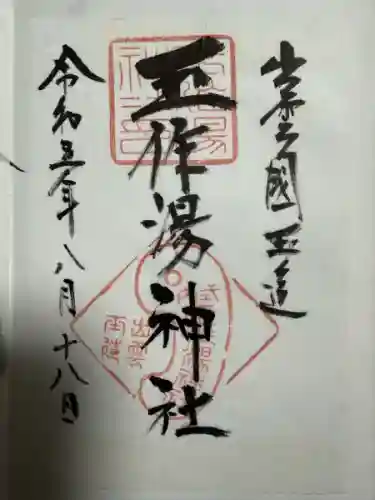 出雲國玉造
玉作湯神社
令和五年八月十八日